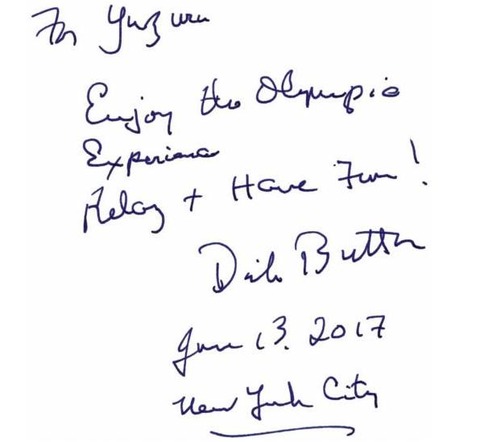 For Yuzuru
Enjoy the Olympic
Experience
Relax + Have Fun!
Dick Button
Jan 13. 2017
New York City